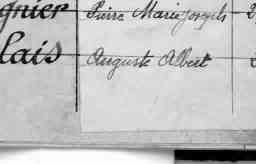 gnier Pierre Marie Joseph
lais Auguste Albert